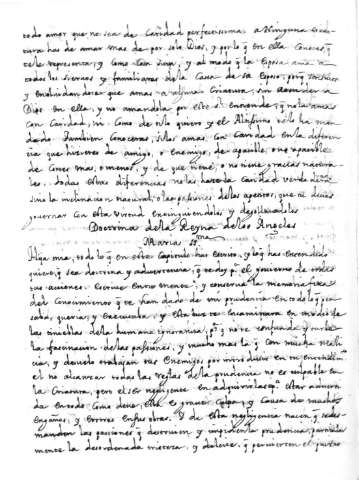 todo amor que no sea de Caridad perfectissima. a Ninguna cria-
tura has de amar mas de por solo Dios, y por lo q̃ en ella Conoces q̃
te le representa; y Como Cosa suya, y al modo q̃ la esposa ama a
todos los siervos y familiares de la Casa de su esposo, porq̃ son suyos
y en olvidandote que amas a alguna Criatura, sin atender a
Dios en ella, y no amandola por este Sr. entiende, q̃ no la amas
con Caridad, ni Como de ti lo quiero y el Altissimo te lo ha man-
dado. Tambien Conoceras, si los amas con Caridad en la diferen-
cia que hizieres de amigo, o enemigo, de apacible, o no apacible
de Cortes mas, o menos, y de que tiene, o no tiene gracias natura-
les. todas estas diferencias no las haze la Caridad verdadera
sino la inclinacion natural, o las passiones de los apetitos, que tu debes
governar con esta Virtud extinguiendolos y degollandolos
Doctrina de la Reyna de los Angeles
Maria SSma
Hija mia, todo lo q̃ en este Capitulo has escrito, y lo q̃ has entendido
quiero, q̃ sea doctrina y advertencia, q̃ te doy pa. el govierno de todas
tus acciones. Escrive en tu mente, y conserva la memoria fixa
del Conocimiento q̃ te han dado de mi prudencia en todo lo q̃ pen-
saba, queria, y executaba, y esta luz te encaminara en medio de
las tinieblas de la humana ignorancia, pa. q̃ no te confunda y turbe
la fascinacion de las passiones, y mucho mas la q̃ con mucha mali-
cia, y desvelo trabajan tus enemigos, por introducir en tu entendimto.
el no alcanzar todas las reglas de la prudencia no es culpable en
la Criatura, pero el ser negligente en adquirirlas pa. estar advertida
en todo como debe, esta es grave culpa, y Causa de muchos
engaños, y errores en sus obras. Y de esta negligencia nacen q̃ se des-
manden las passiones q̃ destruien y impiden la prudencia, particular-
mente la desordenada tristeza, y deleite q̃ pervierten el juizio